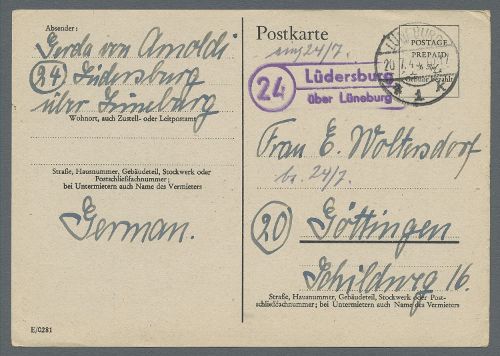 Absender:
Gerda von Arnoldi
(24) Lüdersburg
über Lüneburg
Wohnort, auch Zustell- oder Leitpostamt
Straße, Hausnummer, Gebäudeteil, Stockwerk oder
Postschließfachnummer;
bei Untermietern auch Name des Vermieters
German.
E/0281
Postkarte
24/7.
LÜNEBURG
20.7.4
* 1 *
POSTAGE
PREPAID
Gebühr bezahlt
24
Lüdersburg
über Lüneburg
Frau E. Woltersdorf
24/7
(20) Göttingen
Schildweg 16.
Straße, Hausnummer, Gebäudeteil, Stockwerk oder Post-
schließfachnummer; bei Untermietern auch Name des Vermieters